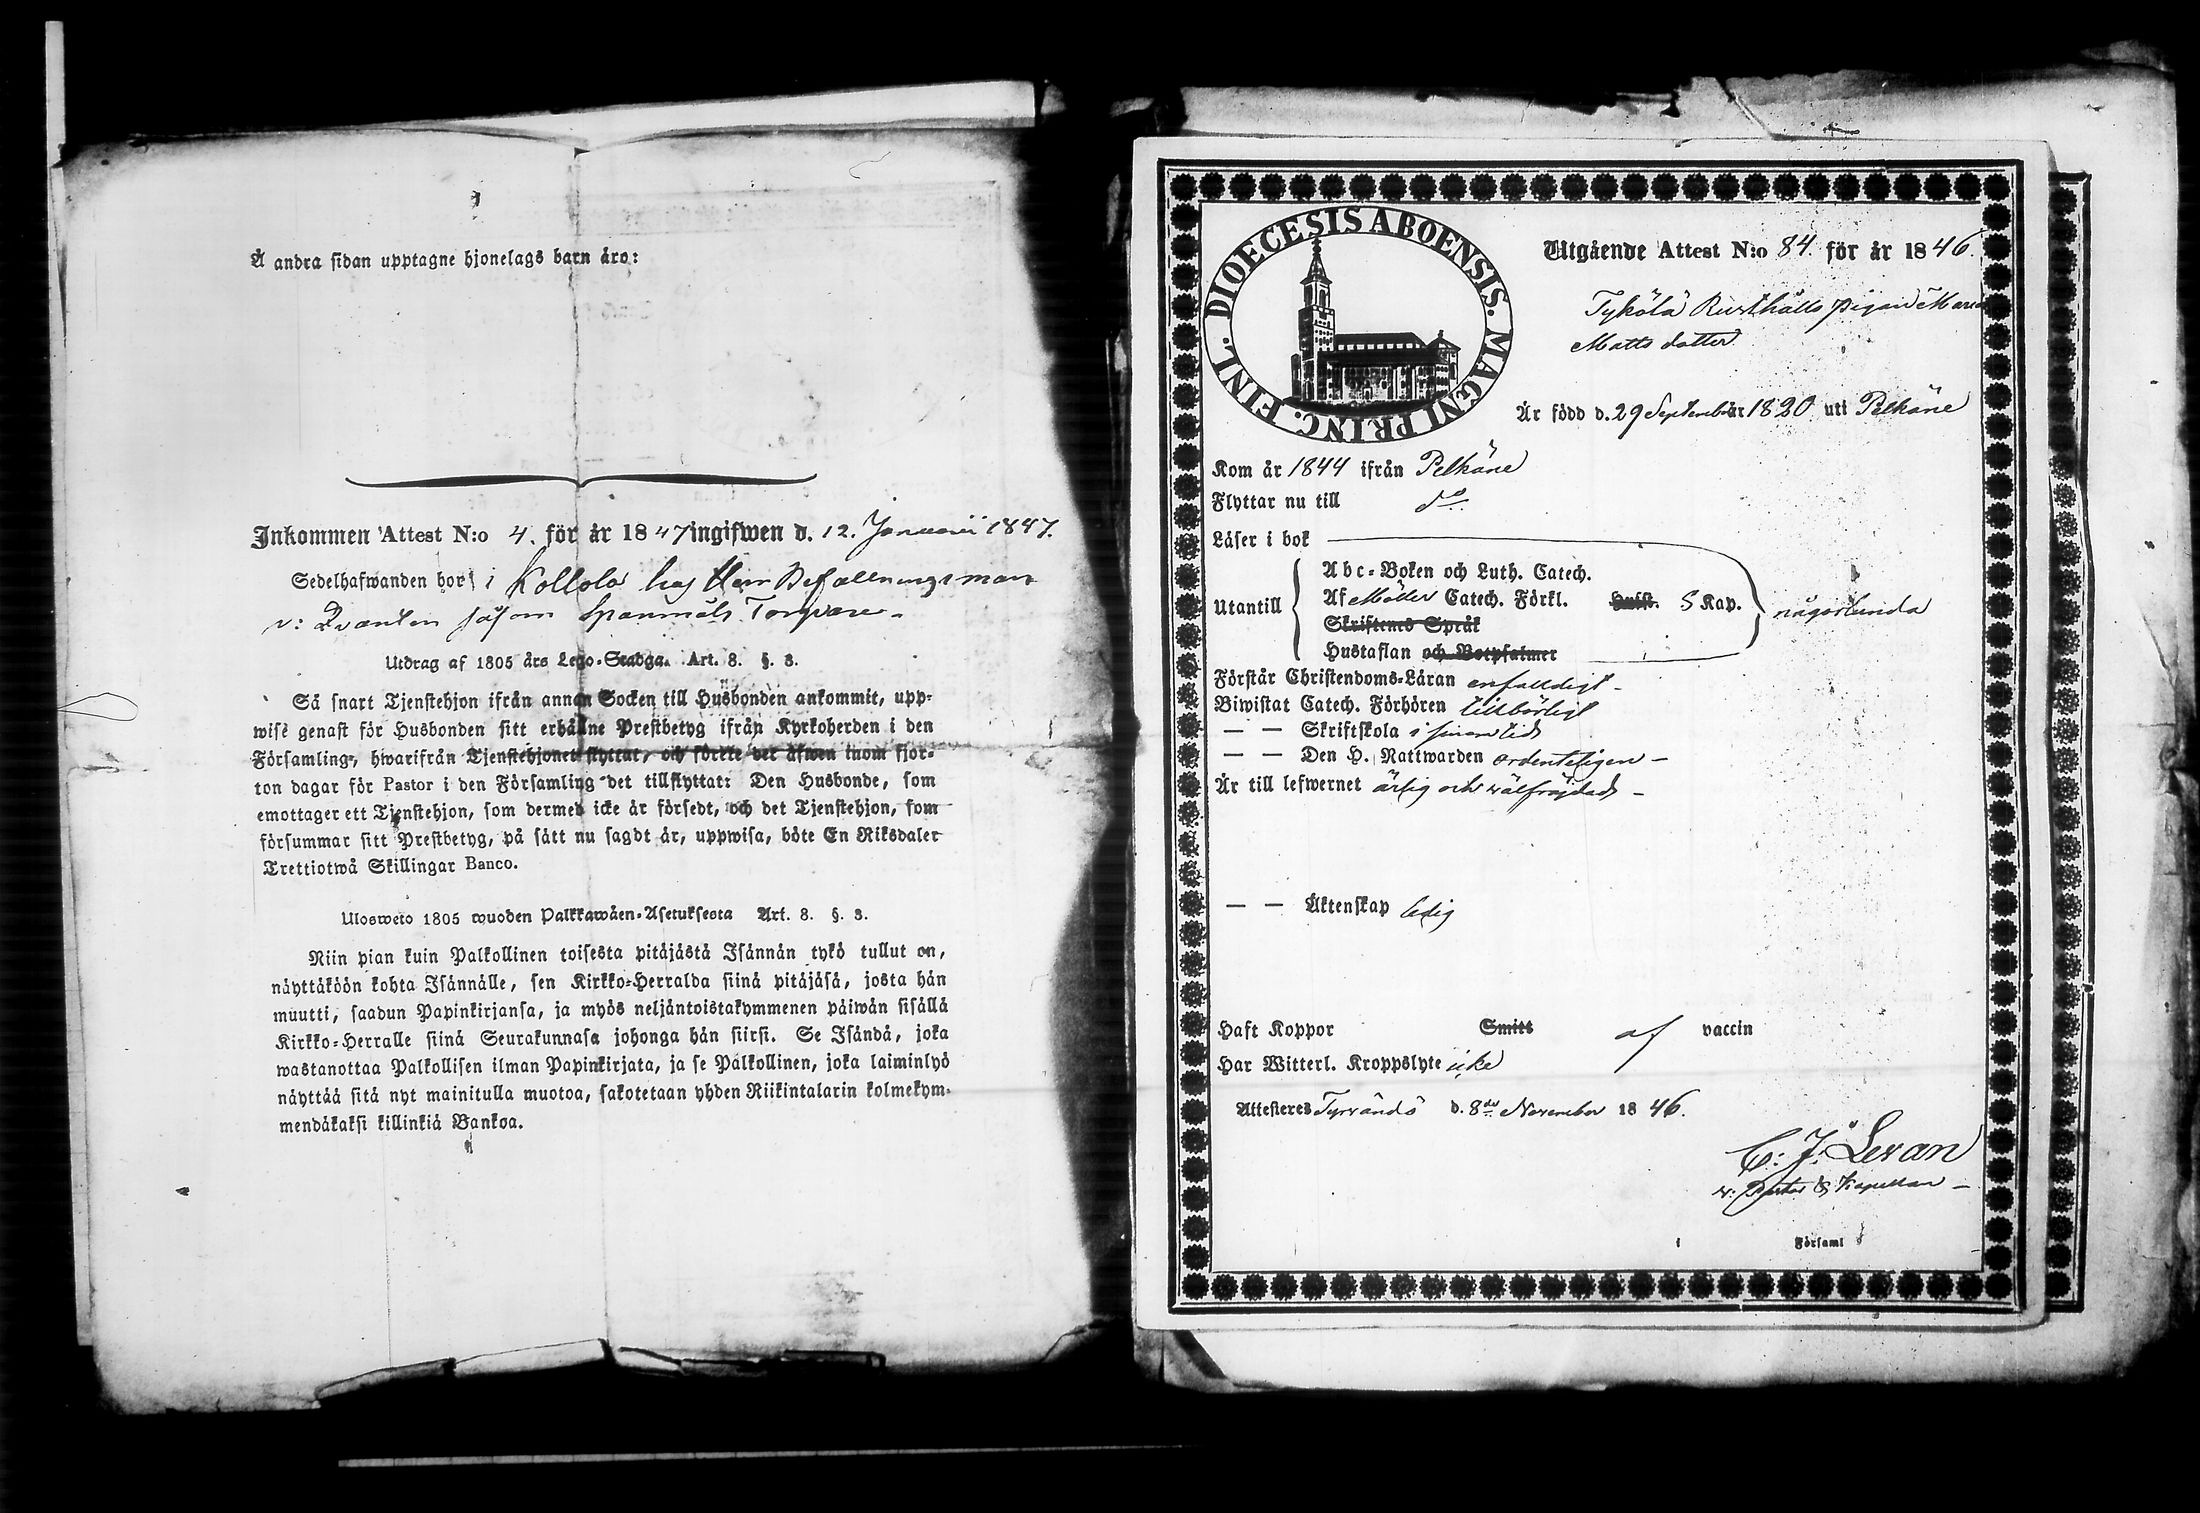 Å andra sidan upptagne hjonelags barn äro:
Inkommen Attest N:o 4. för år 1847 ingifwen d. 12. Januarii 1847.
Sedelhafwanden bor i Kollola hos Herr Befallningsman
v: Qvanten såsom Spanmåls Torpare.
Utdrag af 1805 års Lego-Stadga. Art. 8. §. 3.
Så snart Tjenstehjon ifrån annan Socken till Husbonden ankommit, upp-
wise genast för Husbonden sitt erhållne Prestbetyg ifrån Kyrkoherden i den
Församling, hwarifrån Tjenstehjonet flyttat, och förete det äfwen inom fjor-
ton dagar för Pastor i den Församling det tillflyttat: Den Husbonde, som
emottager ett Tjenstehjon, som dermed icke är försedt, och det Tjenstehjon, som
försummar sitt Prestbetyg, på sätt nu sagdt är, uppwisa, böte En Riksdaler
Trettiotwå Skillingar Banco.
Ulosweto 1805 wuoden Palkkawäen-Asetuksesta Art. 8. §. 3.
Niin pian kuin Palkollinen toisesta pitäjästä Isännän tykö tullut on,
näyttäköön kohta Isännälle, sen Kirkko-Herralda siinä pitäjäsä, josta hän
muutti, saadun Papinkirjansa, ja myös neljäntoistakymmenen päiwän sisällä
Kirkko-Herralle siinä Seurakunnasa johonga hän siirsi. Se Isändä, joka
wastanottaa Palkollisen ilman Papinkirjata, ja se Palkollinen, joka laiminlyö
näyttää sitä nyt mainitulla muotoa, sakotetaan yhden Riikintalarin kolmekym-
mendäkaksi killinkiä Bankoa.
DIOECESIS ABOENSIS. MAGNI PRINC. FINL.
Utgående Attest N:o 84. för år 1846.
Tykölä Rusthålls pigan Maria
Matts dotter
Är född d. 29 September 1820 uti Pelkäne
Kom år 1844 ifrån Pelkäne
Flyttar nu till do
Läser i bok
Utantill
Abc-Boken och Luth. Catech.
Af Möller Catech. Förkl. Hufst. 5 Kap. någorlunda
Skriftenes Språk
Hustaflan och Botpsalmer
Förstår Christendoms-Läran enfalldigt
Biwistat Catech. Förhören tillbörligt
— — Skriftskola i sinom tid
— — Den H. Nattwarden ordenteligen
Är till lefwernet ärlig och wälfrägdad
— — Äktenskap ledig
Haft Koppor Smitt af vaccin
Har Witterl. Kroppslyte icke
Attesteres Tyrvändö d. 8de November 1846.
C: J: Levan
v: Pastor & Kapellan
i Församl